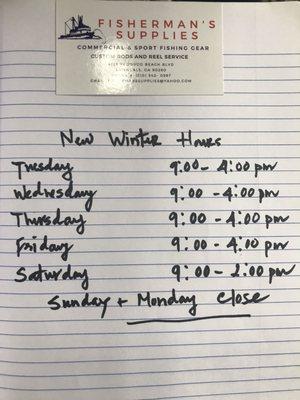 FISHERMAN'S
SUPPLIES
COMMERCIAL & SPORT FISHING GEAR
CUSTOM RODS AND REEL SERVICE
REDONDO BEACH BLVD
CA 90260
New Winter Hours
Tuesday 9:00 - 4:00 pm
Wednesday 9:00 - 4:00 pm
Thursday 9:00 - 4:00 pm
Friday 9:00 - 4:00 pm
Saturday 9:00 - 2:00 pm
Sunday + Monday Close